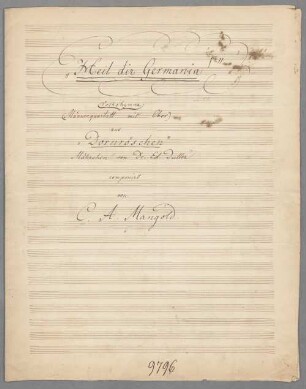 „Heil dir Germania
Männerquartett mit Chor
aus
„Dornröschen"
Mährchen von Dr. Ed. Duller
componirt
von
C. A. Mangold.
9796